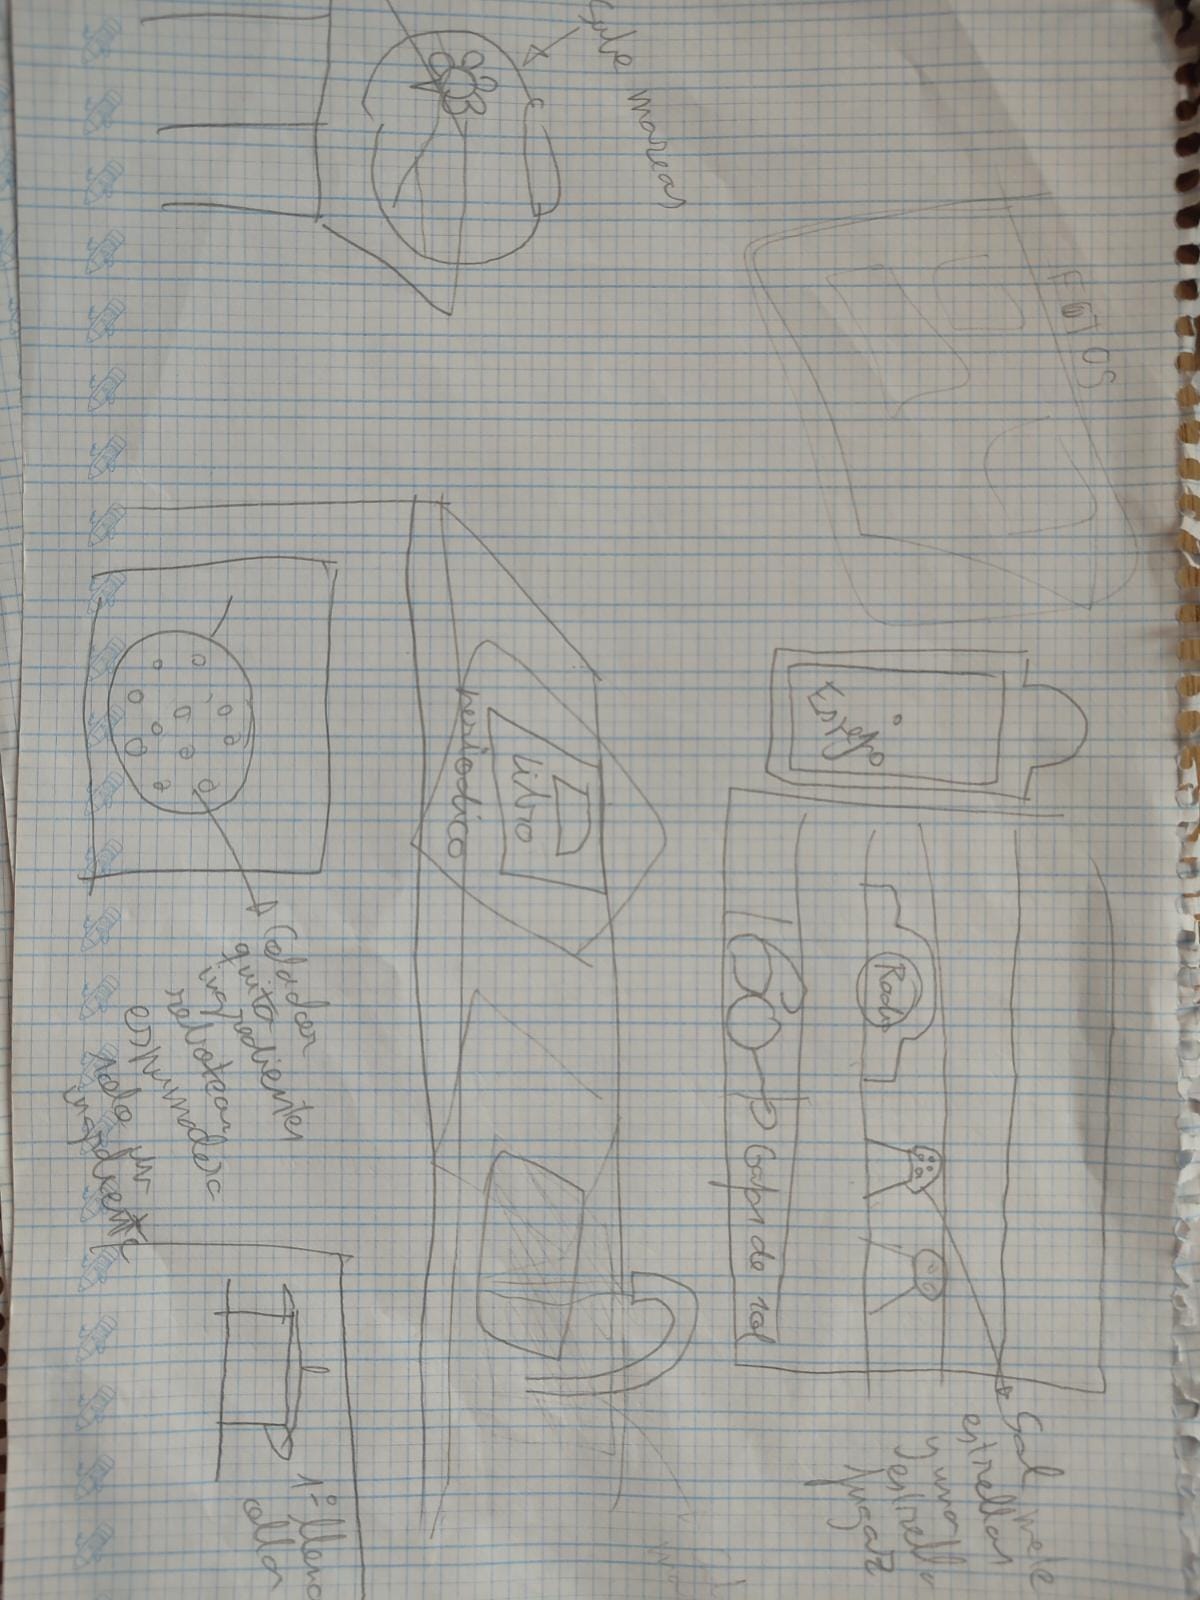 FOTOS
Espejo
Radio
Sal mete
estrellas
y una
estrella
fugaz
Gafas de sol
Sube mareas
Libro
periodico
Colador
quita
ingredientes
rebotear
espumadera
solo un
ingrediente
1º llena
olla